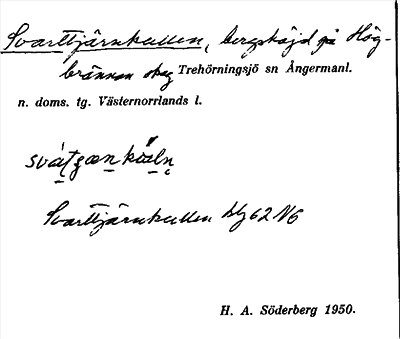 Svarttjärnkullen, bergshöjd på Hög-
brännan skog Trehörningsjö sn Ångermanl.
n. doms. tg. Västernorrlands l.
Svarttjärnkullen bl 62 V6
H. A. Söderberg 1950.